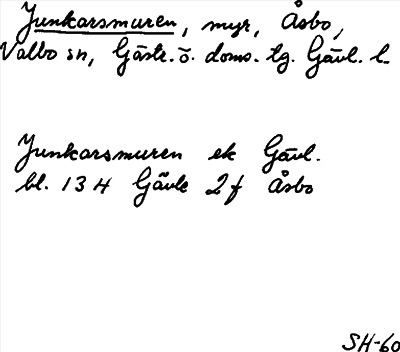 Junkarsmuren, myr, Åsbo,
Valbo sn, Gästr. ö. doms. tg. Gävl. l.
Junkarsmuren ek Gävl.
bl. 13 H Gävle 2 f Åsbo
SH-60